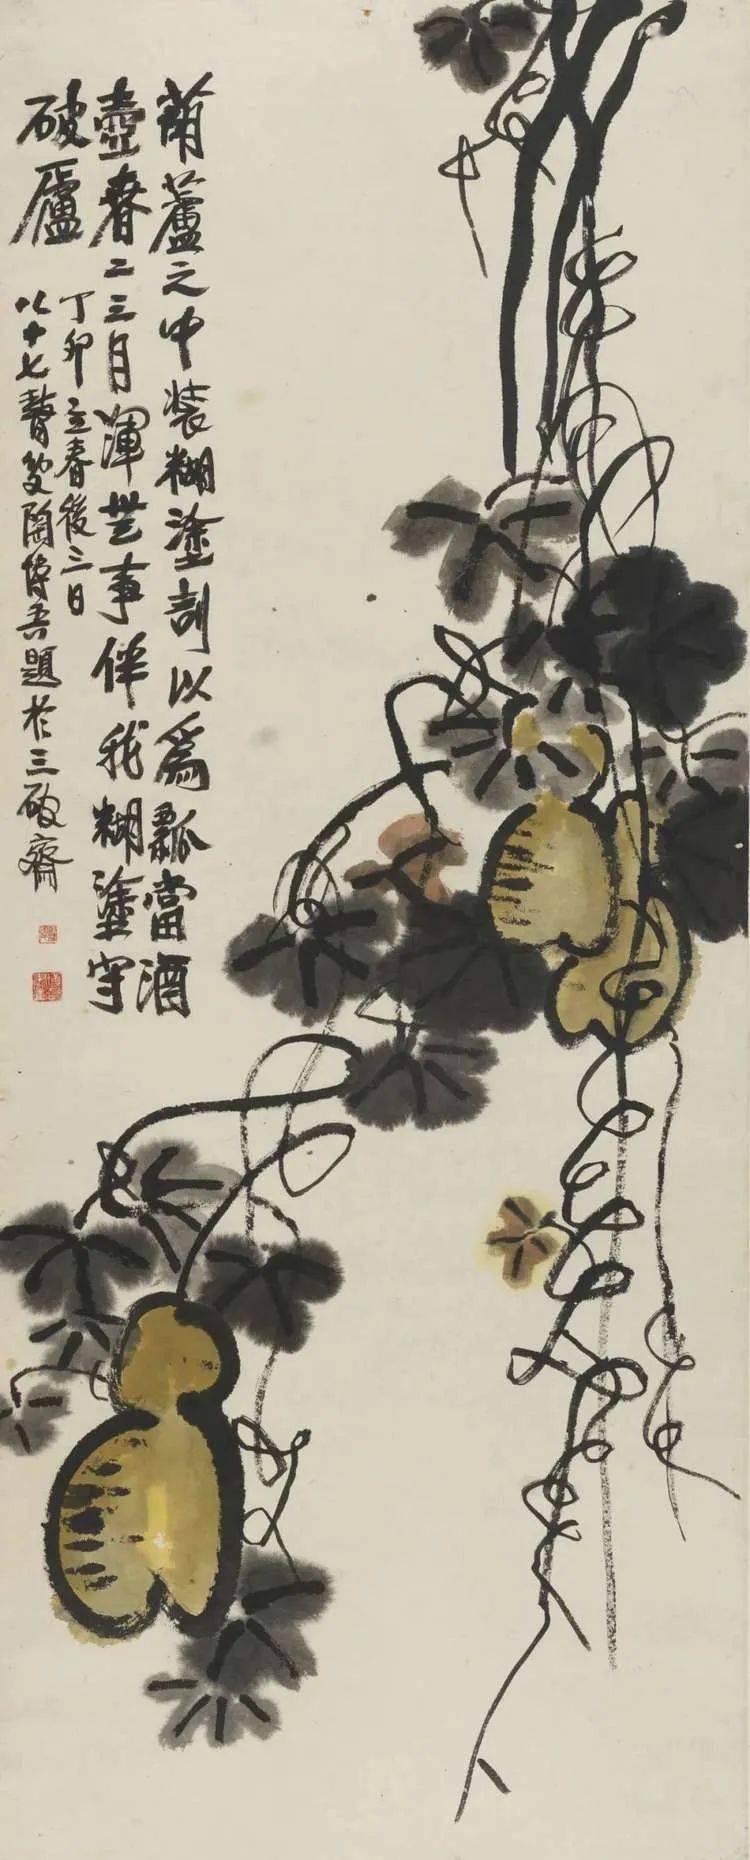 葫蘆之中裝糊塗剖以為瓢當酒
壺春二三月渾無事伴我糊塗守
破廬
丁卯立春後三日
八十七瞽叟陶博吾題於三破齋